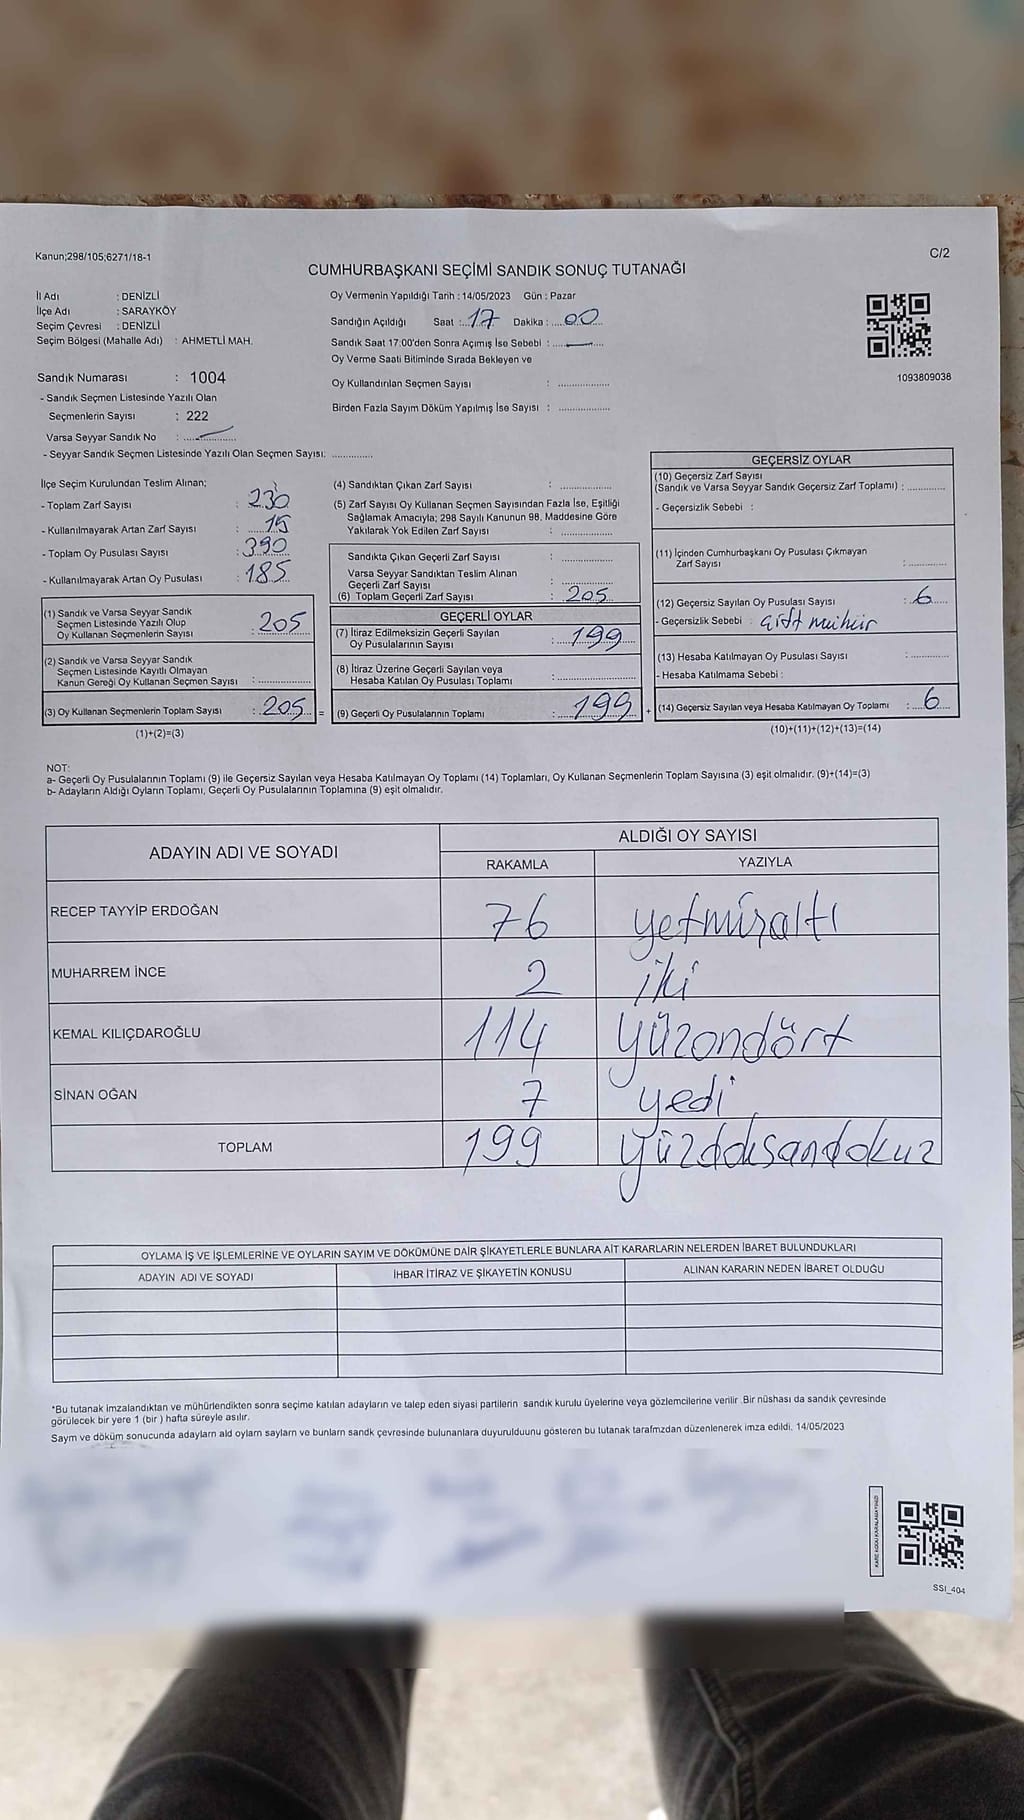 Kanun;298/105;6271/18-1
C/2
CUMHURBAŞKANI SEÇİMİ SANDIK SONUÇ TUTANAĞI
İl Adı : DENİZLİ
İlçe Adı : SARAYKÖY
Seçim Çevresi : DENİZLİ
Seçim Bölgesi (Mahalle Adı) : AHMETLİ MAH.
Sandık Numarası : 1004
- Sandık Seçmen Listesinde Yazılı Olan
Seçmenlerin Sayısı : 222
Varsa Seyyar Sandık No :
- Seyyar Sandık Seçmen Listesinde Yazılı Olan Seçmen Sayısı:
Oy Vermenin Yapıldığı Tarih : 14/05/2023 Gün : Pazar
Sandığın Açıldığı Saat : 17 Dakika : 00
Sandık Saat 17:00'den Sonra Açımış İse Sebebi : —
Oy Verme Saati Bitiminde Sırada Bekleyen ve
Oy Kullandırılan Seçmen Sayısı :
Birden Fazla Sayım Döküm Yapılmış İse Sayısı :
1093809038
İlçe Seçim Kurulundan Teslim Alınan;
- Toplam Zarf Sayısı : 230
- Kullanılmayarak Artan Zarf Sayısı : 15
- Toplam Oy Pusulası Sayısı : 390
- Kullanılmayarak Artan Oy Pusulası : 185
(1) Sandık ve Varsa Seyyar Sandık
Seçmen Listesinde Yazılı Olup
Oy Kullanan Seçmenlerin Sayısı : 205
(2) Sandık ve Varsa Seyyar Sandık
Seçmen Listesinde Kayıtlı Olmayan
Kanun Gereği Oy Kullanan Seçmen Sayısı :
(3) Oy Kullanan Seçmenlerin Toplam Sayısı : 205 =
(1)+(2)=(3)
(4) Sandıktan Çıkan Zarf Sayısı :
(5) Zarf Sayısı Oy Kullanan Seçmen Sayısından Fazla İse, Eşitliği
Sağlamak Amacıyla; 298 Sayılı Kanunun 98. Maddesine Göre
Yakılarak Yok Edilen Zarf Sayısı :
Sandıkta Çıkan Geçerli Zarf Sayısı :
Varsa Seyyar Sandıktan Teslim Alınan
Geçerli Zarf Sayısı :
(6) Toplam Geçerli Zarf Sayısı : 205
GEÇERLİ OYLAR
(7) İtiraz Edilmeksizin Geçerli Sayılan
Oy Pusulalarının Sayısı : 199
(8) İtiraz Üzerine Geçerli Sayılan veya
Hesaba Katılan Oy Pusulası Toplamı :
(9) Geçerli Oy Pusulalarının Toplamı : 199 +
GEÇERSİZ OYLAR
(10) Geçersiz Zarf Sayısı
(Sandık ve Varsa Seyyar Sandık Geçersiz Zarf Toplamı) :
- Geçersizlik Sebebi :
(11) İçinden Cumhurbaşkanı Oy Pusulası Çıkmayan
Zarf Sayısı :
(12) Geçersiz Sayılan Oy Pusulası Sayısı : 6
- Geçersizlik Sebebi : Çift mühür
(13) Hesaba Katılmayan Oy Pusulası Sayısı :
- Hesaba Katılmama Sebebi :
(14) Geçersiz Sayılan veya Hesaba Katılmayan Oy Toplamı : 6
(10)+(11)+(12)+(13)=(14)
NOT:
a- Geçerli Oy Pusulalarının Toplamı (9) ile Geçersiz Sayılan veya Hesaba Katılmayan Oy Toplamı (14) Toplamları, Oy Kullanan Seçmenlerin Toplam Sayısına (3) eşit olmalıdır. (9)+(14)=(3)
b- Adayların Aldığı Oyların Toplamı, Geçerli Oy Pusulalarının Toplamına (9) eşit olmalıdır.
ADAYIN ADI VE SOYADI
ALDIĞI OY SAYISI
RAKAMLA YAZIYLA
RECEP TAYYİP ERDOĞAN 76 yetmişaltı
MUHARREM İNCE 2 iki
KEMAL KILIÇDAROĞLU 114 yüzondört
SİNAN OĞAN 7 yedi
TOPLAM 199 yüzdoksandokuz
OYLAMA İŞ VE İŞLEMLERİNE VE OYLARIN SAYIM VE DÖKÜMÜNE DAİR ŞİKAYETLERLE BUNLARA AİT KARARLARIN NELERDEN İBARET BULUNDUKLARI
ADAYIN ADI VE SOYADI İHBAR İTİRAZ VE ŞİKAYETİN KONUSU ALINAN KARARIN NEDEN İBARET OLDUĞU
*Bu tutanak imzalandıktan ve mühürlendikten sonra seçime katılan adayların ve talep eden siyasi partilerin sandık kurulu üyelerine veya gözlemcilerine verilir .Bir nüshası da sandık çevresinde
görülecek bir yere 1 (bir ) hafta süreyle asılır.
Saym ve döküm sonucunda adaylarn ald oylarn saylarn ve bunlarn sandk çevresinde bulunanlara duyurulduunu gösteren bu tutanak tarafmzdan düzenlenerek imza edildi. 14/05/2023
KARE KODU KARALAMAYINIZ!
SSI_404